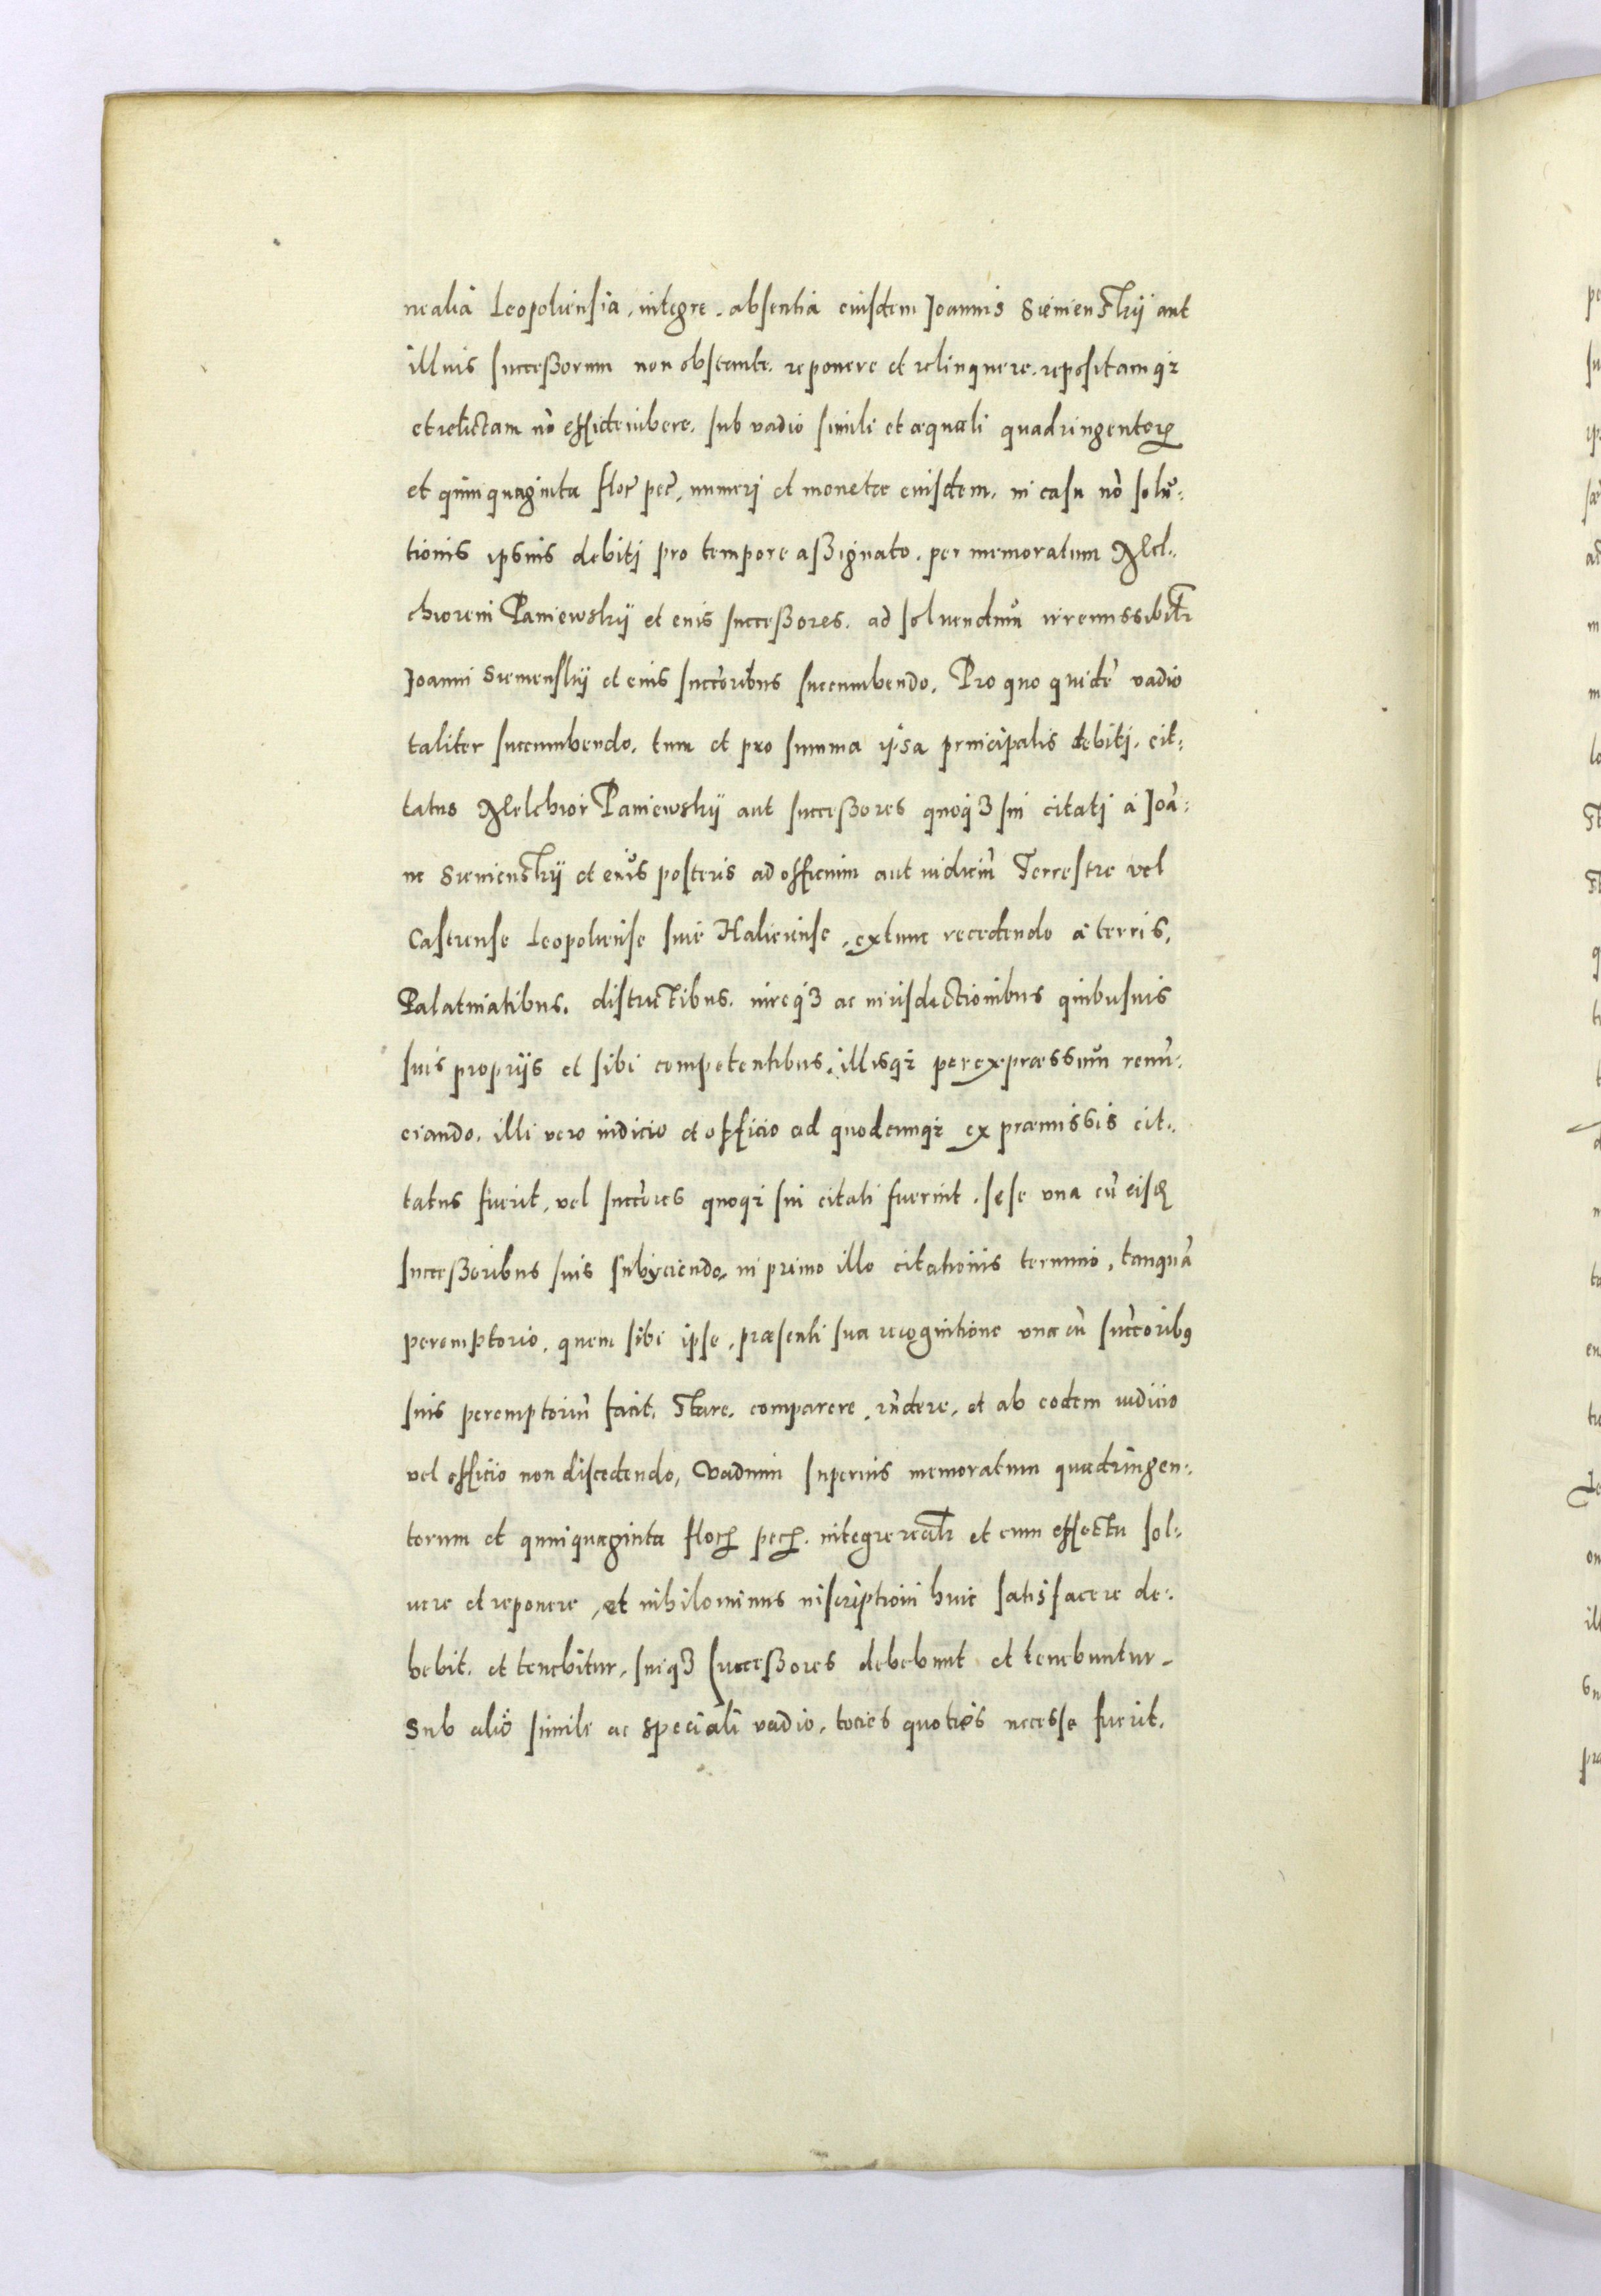 nealia Leopoliensia, integre, absentia eiusdem Joannis Sienienskij aut
illius successorum non obstante, reponere et relinquere, repositamqz
et relictam nō officere, sub vadio simili et æquali quadringentorum
et quinquaginta flor pec, numeri et monetæ eiusdem, in casu nō solu=
tionis ipsius debiti pro tempore assignato, per memoratum Mel=
chiorem Paniewskij et eius successores, ad soluendum irremissibilr
Joanni Sienienskij et eius succoribus succumbendo. Pro quo quidē vadio
taliter succumbendo, tum et pro summa ipsa principalis debiti, cit=
tatus Melchior Paniewskij aut successores quoq3 sui citati à Joā=
ne Sienienskij et eius posteris ad officium aut iudiciū Terrestre vel
Castrense Leopoliense siue Haliciense, extunc recedendo à terris,
Palatinatibus, districtibus, iureq3 ac iurisdictionibus quibusuis
suis proprijs et sibi competentibus, illisqz per expræssum renū=
ciando, illi vero iudicio et officio ad quodcunqz ex præmissis cit=
tatus fuerit, vel succores quoqz sui citati fuerint, sese vna cū eisdem
successoribus suis subijciendo, in primo illo citationis termino, tanquā
peremptorio, quem sibi ipse, præsenti sua recognitione vna cū succoribus
suis peremptoriū facit, stare, comparere, rndere, et ab eodem iudicio
vel officio non discedendo, vadium superius memoratum quadringen=
torum et quinquaginta florum pecum, integre realr et cum effectu sol=
uere et reponere, et nihilominus inscriptioni huic satisfacere de=
bebit, et tenebitur, suiq3 successores debebunt et tenebuntur,
Sub alio simile ac speciali vadio, tocies quoties necesse fuerit,